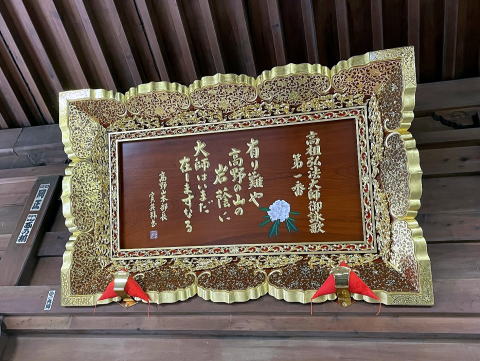 高祖弘法大師御詠歌
第一番
有り難や
高野の山の
岩陰に
大師はいまだ
在しますなる